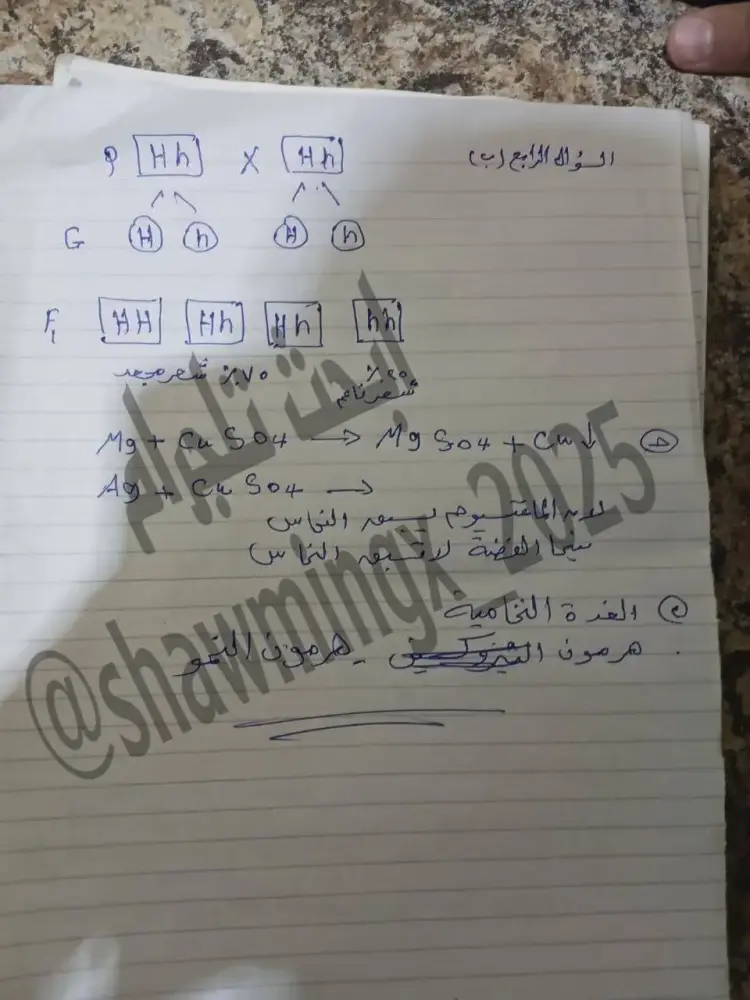 السؤال الرابع (ب)
P Hh X Hh
G H h H h
F1 HH Hh Hh hh
٧٠٪ شعر مجعد
شعر ناعم
Mg + CuSO4 → MgSO4 + Cu↓
Ag + CuSO4 →
لان الماغنسيوم يسبق النحاس
بينما الفضة لا تسبق النحاس
الغدة النخامية
هرمون النمو
ابحث تليجرام
@shawmingx_2025